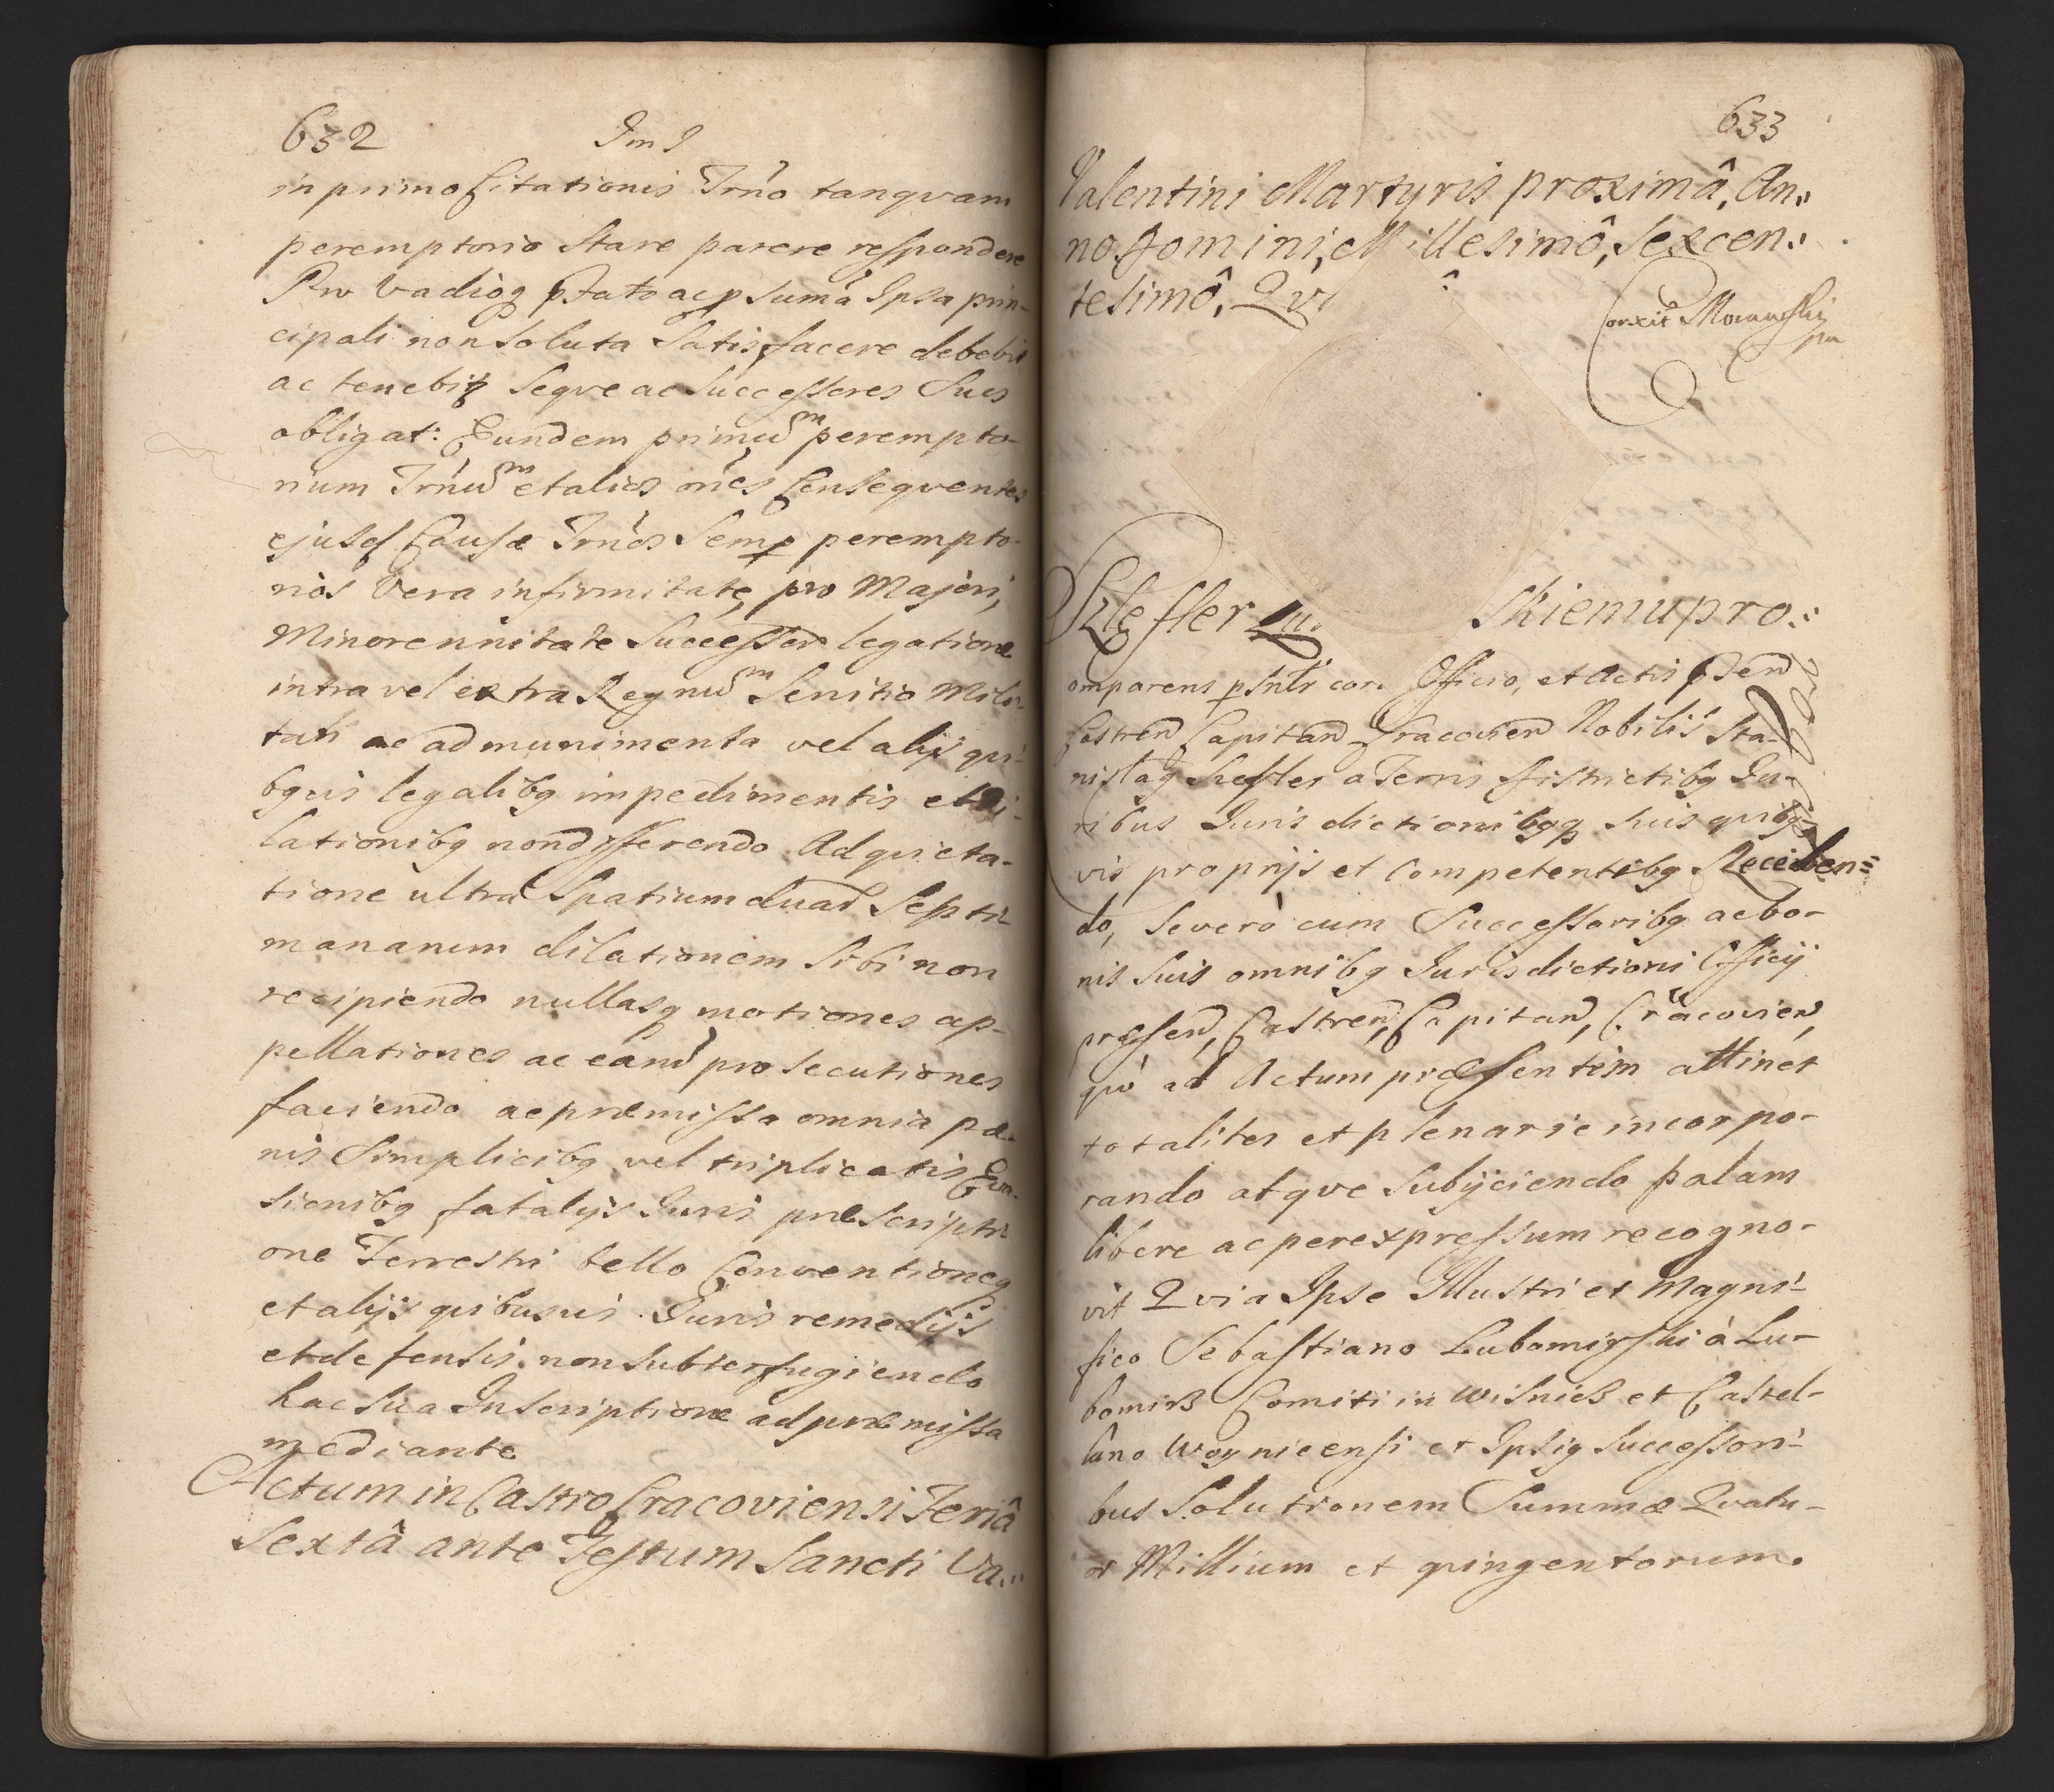 632
in primo Citationis Trn̄o tanqvam
peremptorio Stare parere respondere
Pro Vadioq; ac p Suma Ipsa prin-
cipali non Soluta Satisfacere debebit
ac tenebit Seqve ac Successores Suos
obligat: Eundem primum perempto-
rium Trn̄um et alios oēs Conseqventes
ejusd Causæ Trn̄os Semp perempto-
rios Vera infirmitate, pro Majori,
Minorennitate Successor legatione
intra vel extra Regnum Servitio Mili-
tari ac ad munimenta vel alijs qvi-
bqvis legalibq impedimentis et di-
lationibq non differendo Ad qvieta-
tione ultra Spatium duar Septi-
manarum dilationem Sibi non
recipiendo nullasq motiones ap-
pellationes ac eand prosecutiones
faciendo ac præmissa omnia pæ-
nis Simplicibq vel triplicatis Eva-
sionibq fatalijs Juris præscripti-
one Terrestri bello Conventioneq
et alijs qvibusvis Juris remedijs
et defensis non Subterfugiendo
hac Sua Inscriptione ad præmissa
mediante
Actum in Castro Cracoviensi Feriâ
Sextâ ante Festum Sancti Va,,
633
Valentini Martyris proximâ, An,,
no Domini, Millesimô, Sexcen,,
tesimô, Qv
Szleffer skiemu pro,,
omparens Officio, et Actis
Castren Capitan Cracovien Nobilis Sta-
nislaq Szeffler a Terris Districtibq Ju-
ribus Juris dictionibqq Suis qvibq
vis proprijs et Competentibq Receden=
do, Severò cum Successoribq ac bo-
nis Suis omnibq Jurisdictioni Officij
præsen, Castren, Capitan, Cracovien,
qvò ad Actum præsentem attinet
totaliter et plenarie incorpo-
rando atqve Subijciendo palam
libere ac per expressum recogno-
vit Qvia Ipse Illustri et Magni-
fico Sebastiano Lubomirski à Lu-
bomirz Comiti in Wisnicz et Castel-
lano Woynicensi et Ipsiq Successori-
bus Solutionem Summæ Qvatu-
or Millium et qvingentorum.